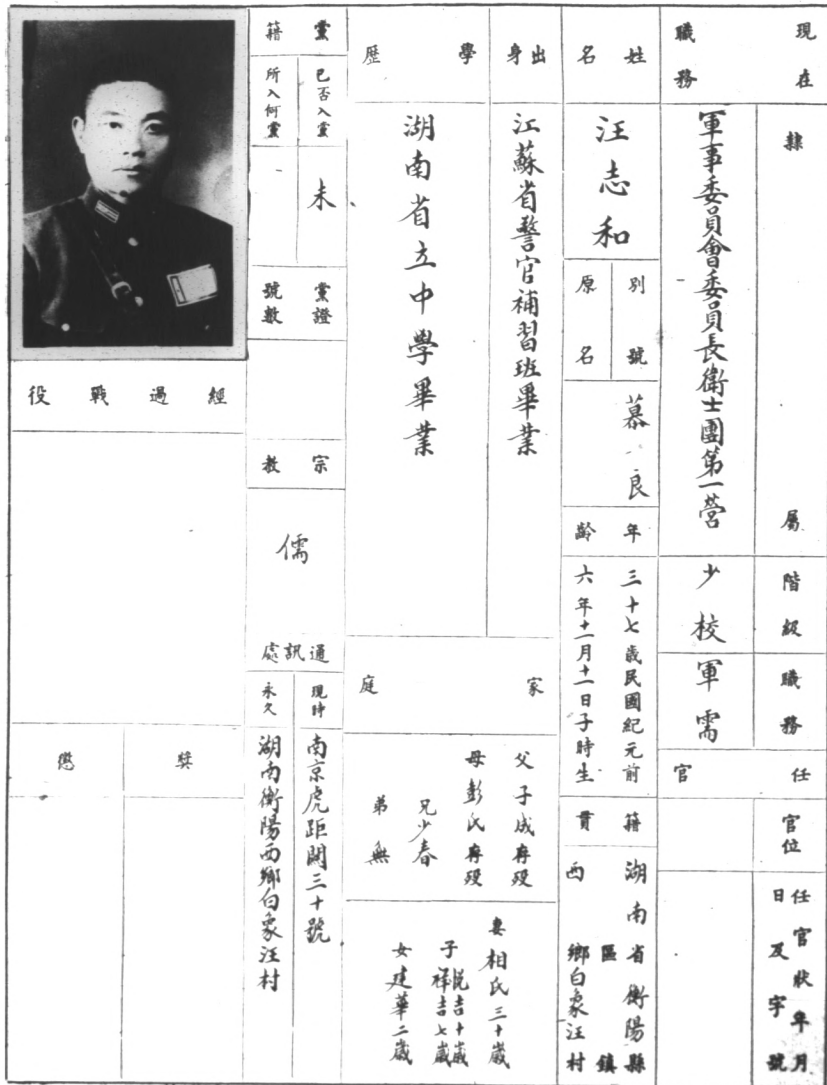 現在職務
隸屬
軍事委員會委員長衛士團第一營
階級
少校
職務
軍需
任官
官位
任官狀年月日及字號
姓名
汪志和
別號
原名
慕良
年齡
三十七歲民國紀元前
六年十一月十一日子時生
籍貫
湖南省衡陽縣
區鎮
西鄉白象汪村
出身
江蘇省警官補習班畢業
學歷
湖南省立中學畢業
家庭
父子成存歿
母彭氏存歿
兄少春
弟無
妻相氏三十歲
子悅吉十歲
祥吉七歲
女建華二歲
黨籍
已否入黨
未
所入何黨
黨證號數
宗教
儒
通訊處
現時
南京虎距關三十號
永久
湖南衡陽西鄉白象汪村
經過戰役
獎
懲